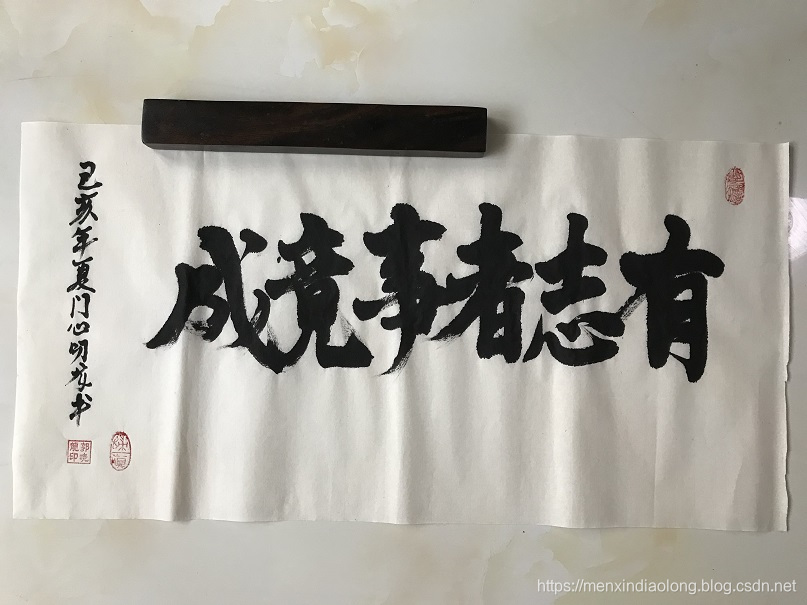 有志者事竟成
己亥年夏门心书
https://menxindiaolong.blog.csdn.net